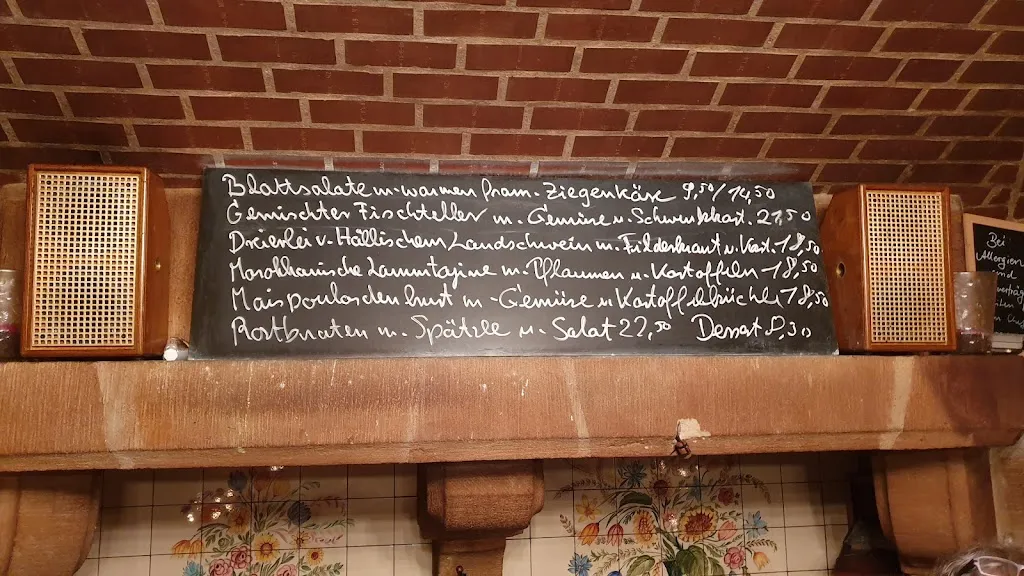 Blattsalate m. warmen fran. Ziegenkäse 9,50/14,50
Gemischter Fischteller m. Gemüse u. Schwenkkart. 21,50
Dreierlei v. Hällischem Landschwein m. Filderkraut u. Kart. 18,50
Marokkanische Lammtajine m. Pflaumen u. Kartoffeln 18,50
Maispoulardenbrust m. Gemüse u. Kartoffelküchle 18,50
Rostbraten m. Spätzle u. Salat 22,50 Dessert 8,30
Bei
Allergien
und